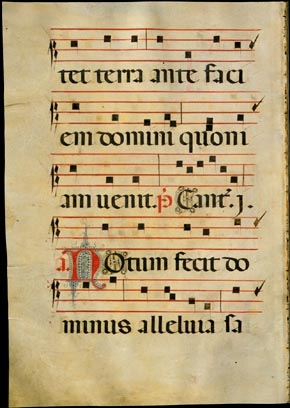 tet terra ante faci
em domini quoni
am venit. ps Cant. j.
a. Notum fecit do
minus alleluia sa